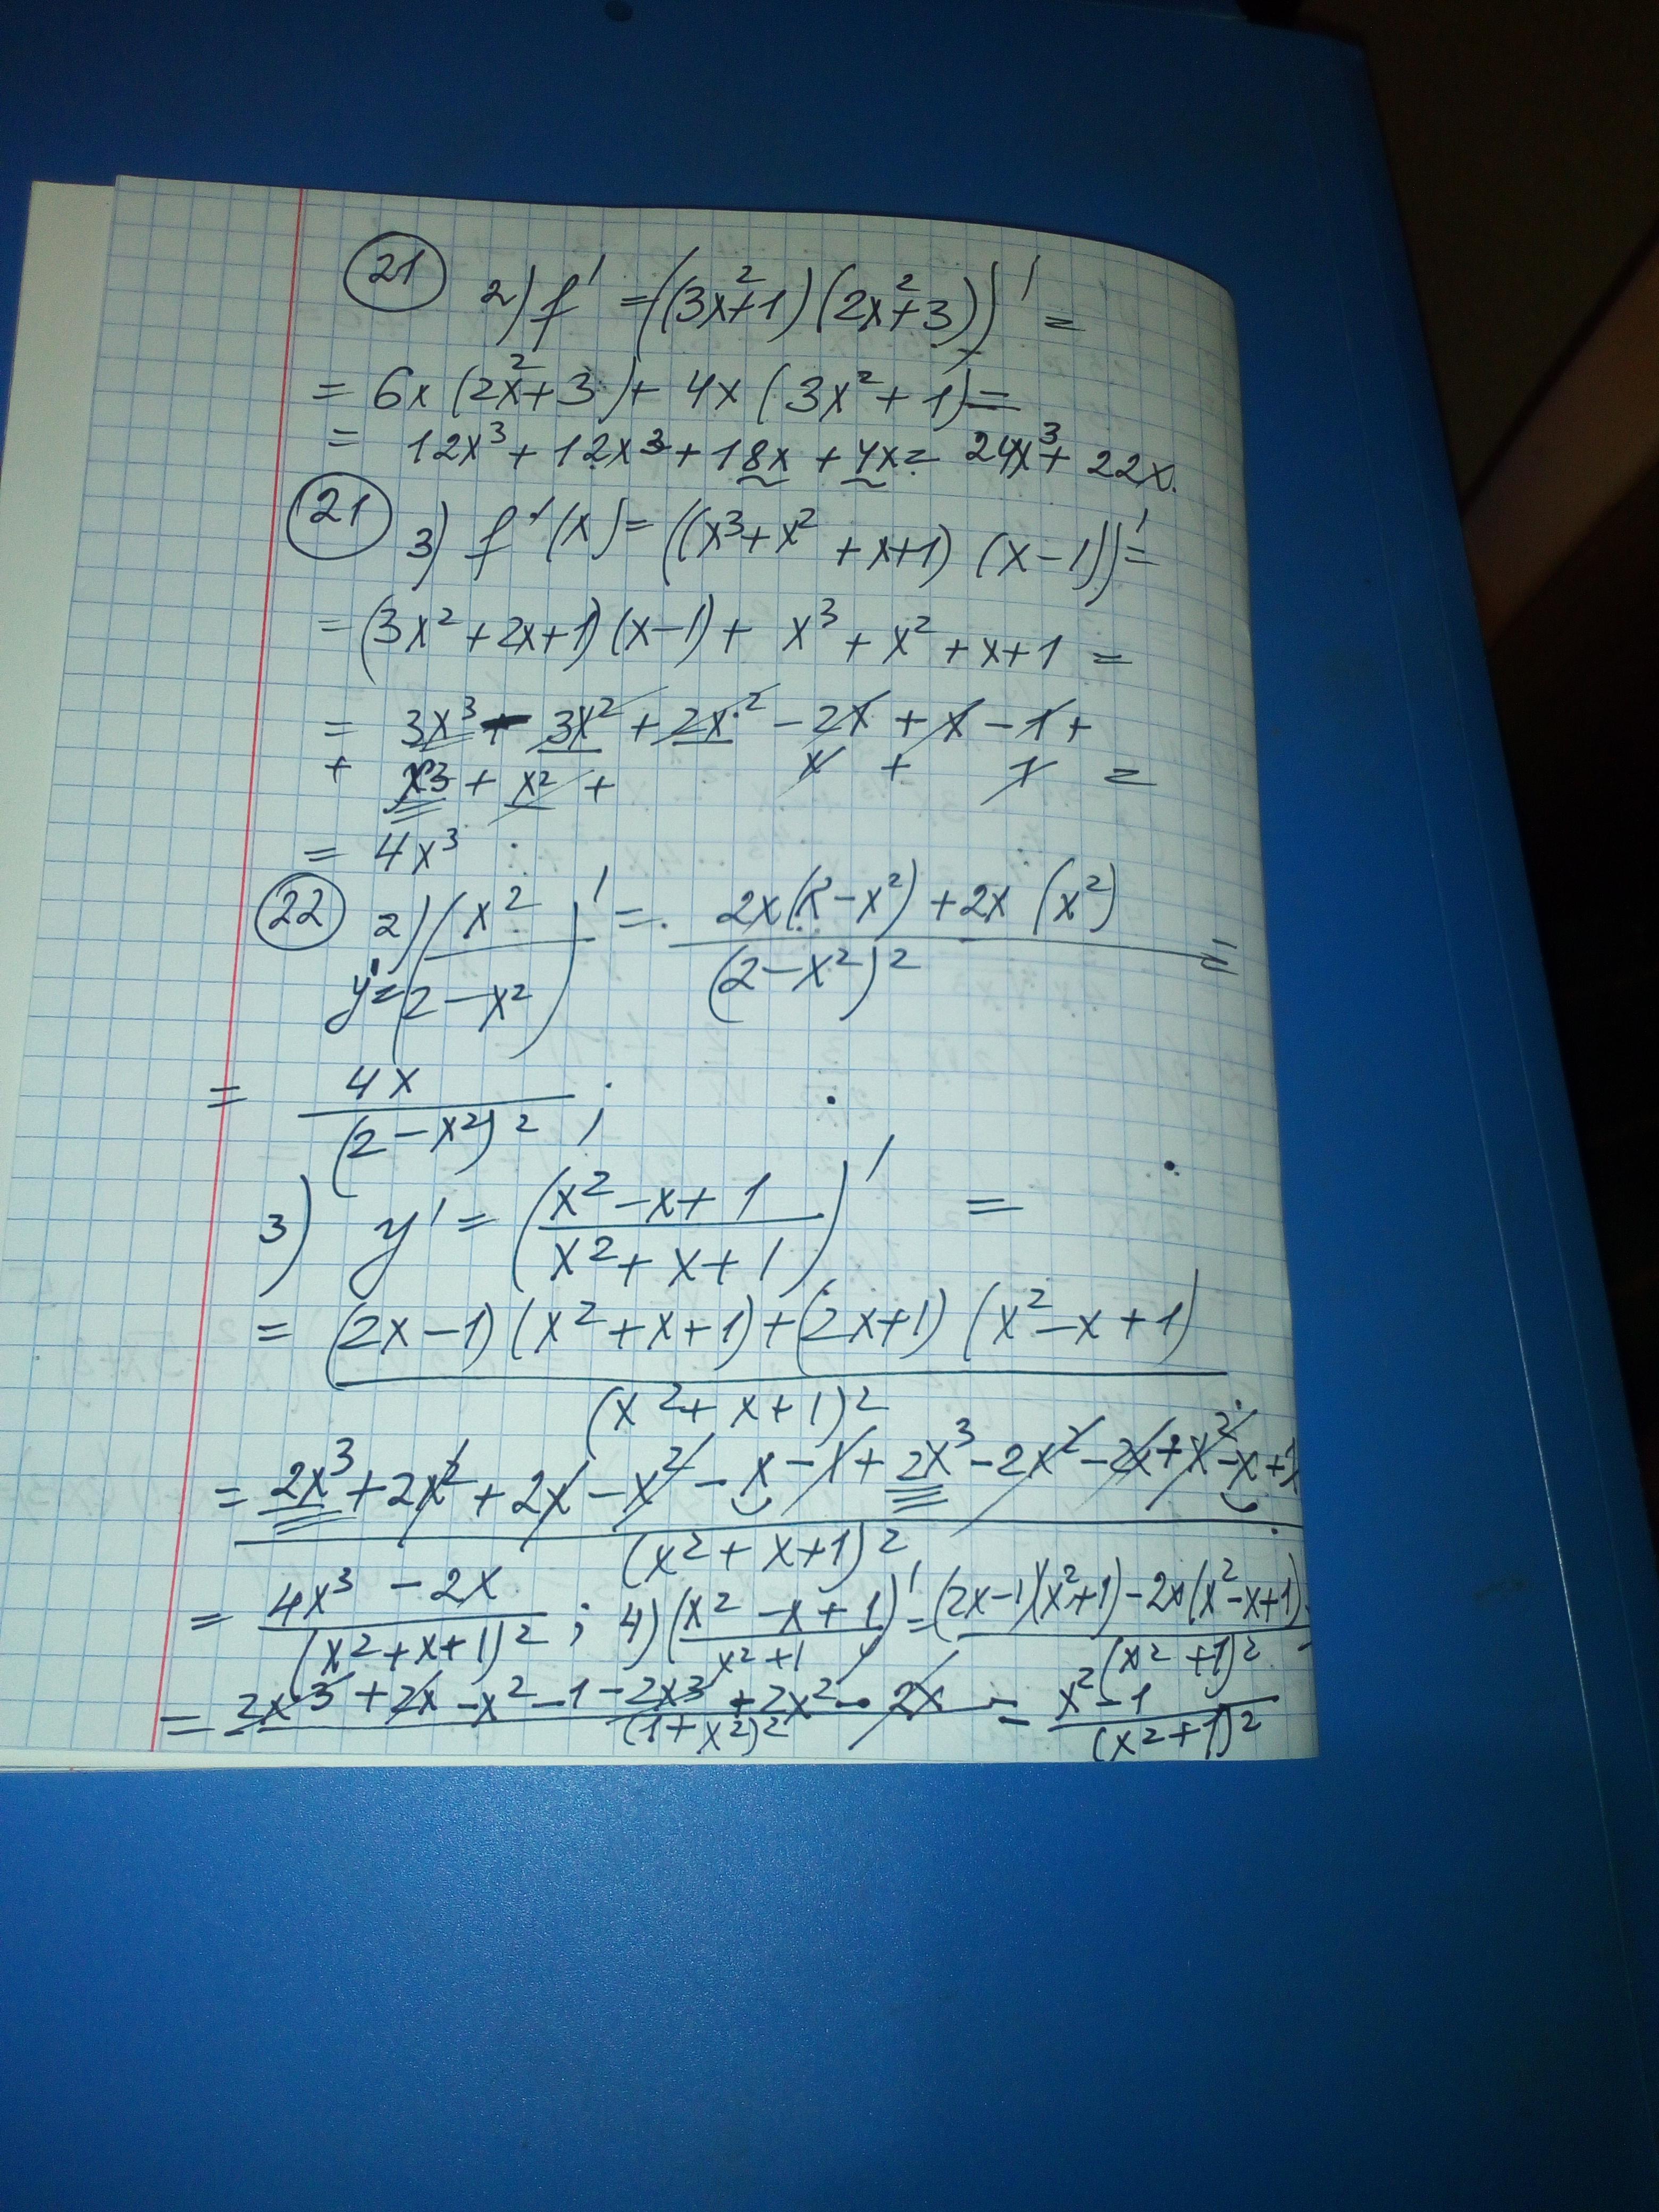 21 2) f' = ((3x²+1)(2x²+3))' =
= 6x(2x²+3)+ 4x(3x²+1)=
= 12x³+12x³+18x+4x= 24x³+22x.
21 3) f'(x)= ((x³+x²+x+1)(x-1))'=
= (3x²+2x+1)(x-1)+ x³+x²+x+1 =
= 3x³ - 3x² + 2x² - 2x + x - 1 +
+ x³ + x² + x + 1 =
= 4x³
22 2) y'= (x²/(2-x²))' = (2x(2-x²)+2x(x²))/(2-x²)² =
= 4x/(2-x²)² ;
3) y' = ((x²-x+1)/(x²+x+1))' =
= ((2x-1)(x²+x+1)+(2x+1)(x²-x+1))/(x²+x+1)²
= (2x³+2x²+2x-x²-x-1+2x³-2x²-2x+x²-x+1)/(x²+x+1)²
= (4x³-2x)/(x²+x+1)² ; 4) ((x²-x+1)/(x²+1))' = ((2x-1)(x²+1)-2x(x²-x+1))/(x²+1)²
= (2x³+2x-x²-1-2x³+2x²-2x)/(1+x²)² = (x²-1)/(x²+1)²